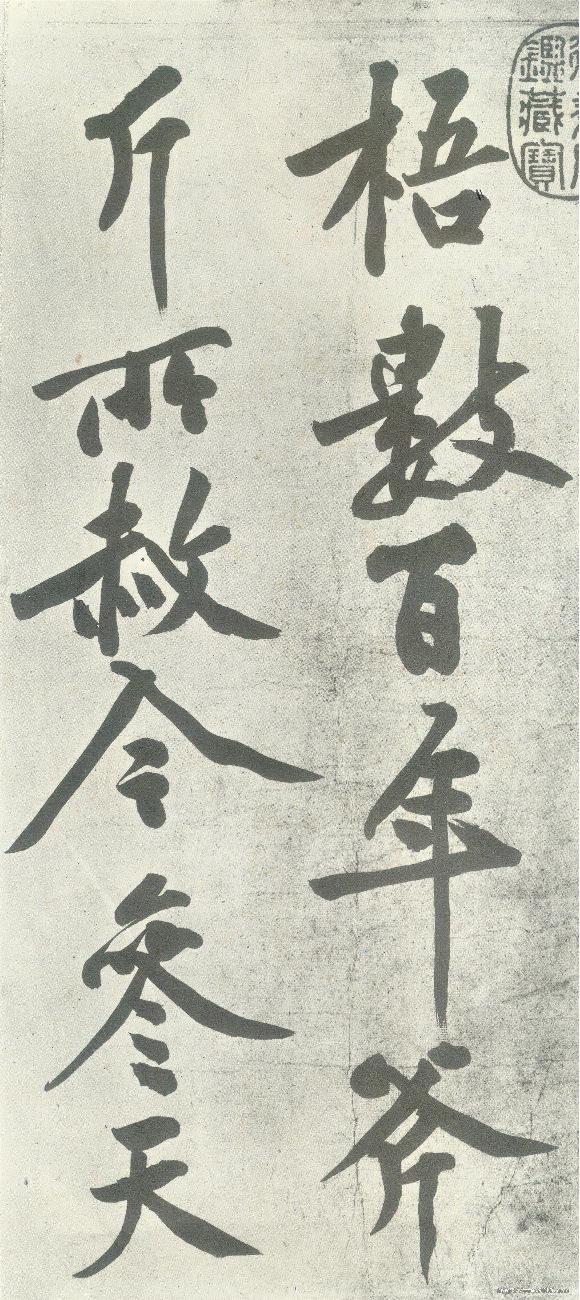 鑑藏寶
梧數百年斧
斤所赦今參天